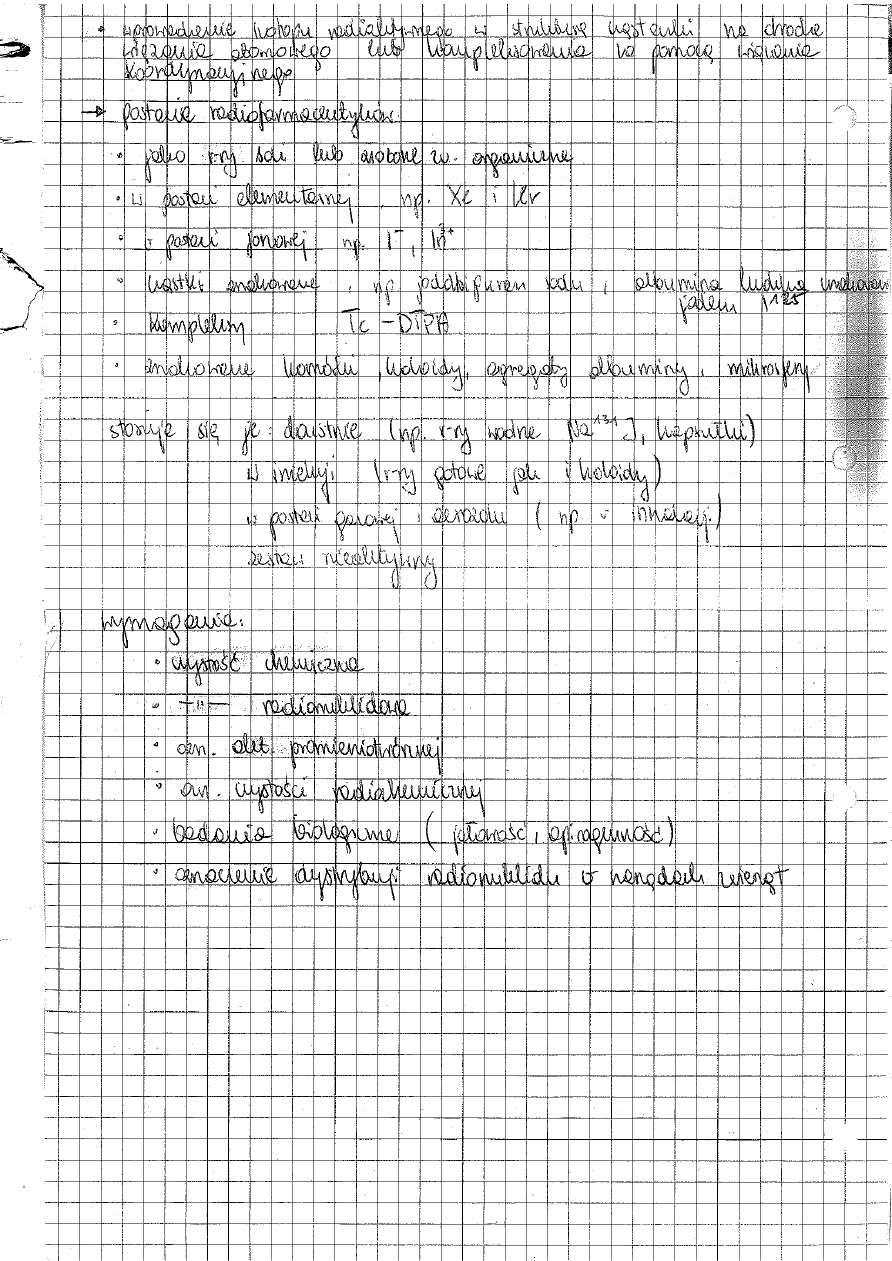 • wprowadzenie izotopu radioaktywnego w strukturę cząsteczki na drodze
wiązania atomowego lub kompleksowania za pomocą wiązania
koordynacyjnego
→ postacie radiofarmaceutyków
• jako r-ry soli lub zw. organiczne
• w postaci elementarnej, np. Xe i Kr
• w postaci jonowej np. I⁻, In³⁺
• cząstki znakowane, np , albumina ludzka znakowana
jodem I¹²⁵
• kompleksy Tc – DTPA
• znakowane komórki, koloidy, agregaty albuminy, mikrosfery
stosuje się je: doustnie (np. r-ry wodne Na¹³¹J, kapsułki)
w iniekcji (r-ry gotowe jak i koloidy)
w postaci gazowej i aerozolu (np w inhalacji)
zestaw nieaktywny
wymagania:
• czystość chemiczna
• —"— radionuklidowa
• ozn. akt. promieniotwórczej
• ozn. czystości radiochemicznej
• badania biologiczne (jałowość, apirogenność)
• oznaczenie dystrybucji radionuklidu w narządach zwierząt